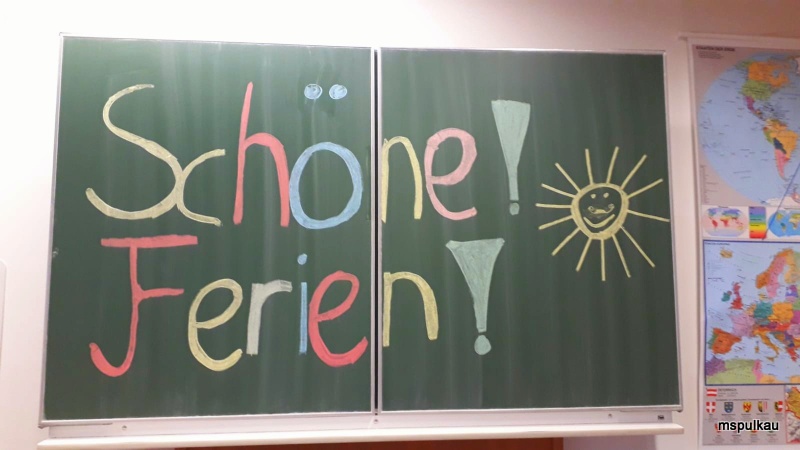 Schöne!
Ferien!
mspulkau